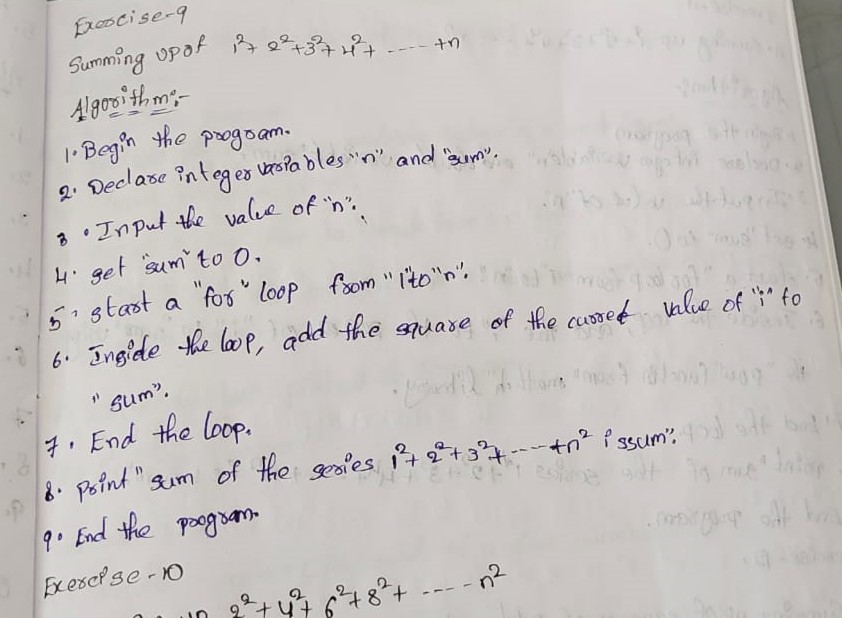 Exercise-9
Summing up of 1²+ 2²+3²+4²+ ---- +n
Algorithm:-
1. Begin the program.
2. Declare integer variables "n" and "sum".
3. Input the value of "n".
4. set "sum" to 0.
5. start a "for" loop from "1"to"n".
6. Inside the loop, add the square of the curret value of "i" to
"sum".
7. End the loop.
8. print "sum of the series 1²+ 2²+3²+----+n² issum".
9. End the program.
Exercise-10
2²+4²+6²+8²+ ---- n²